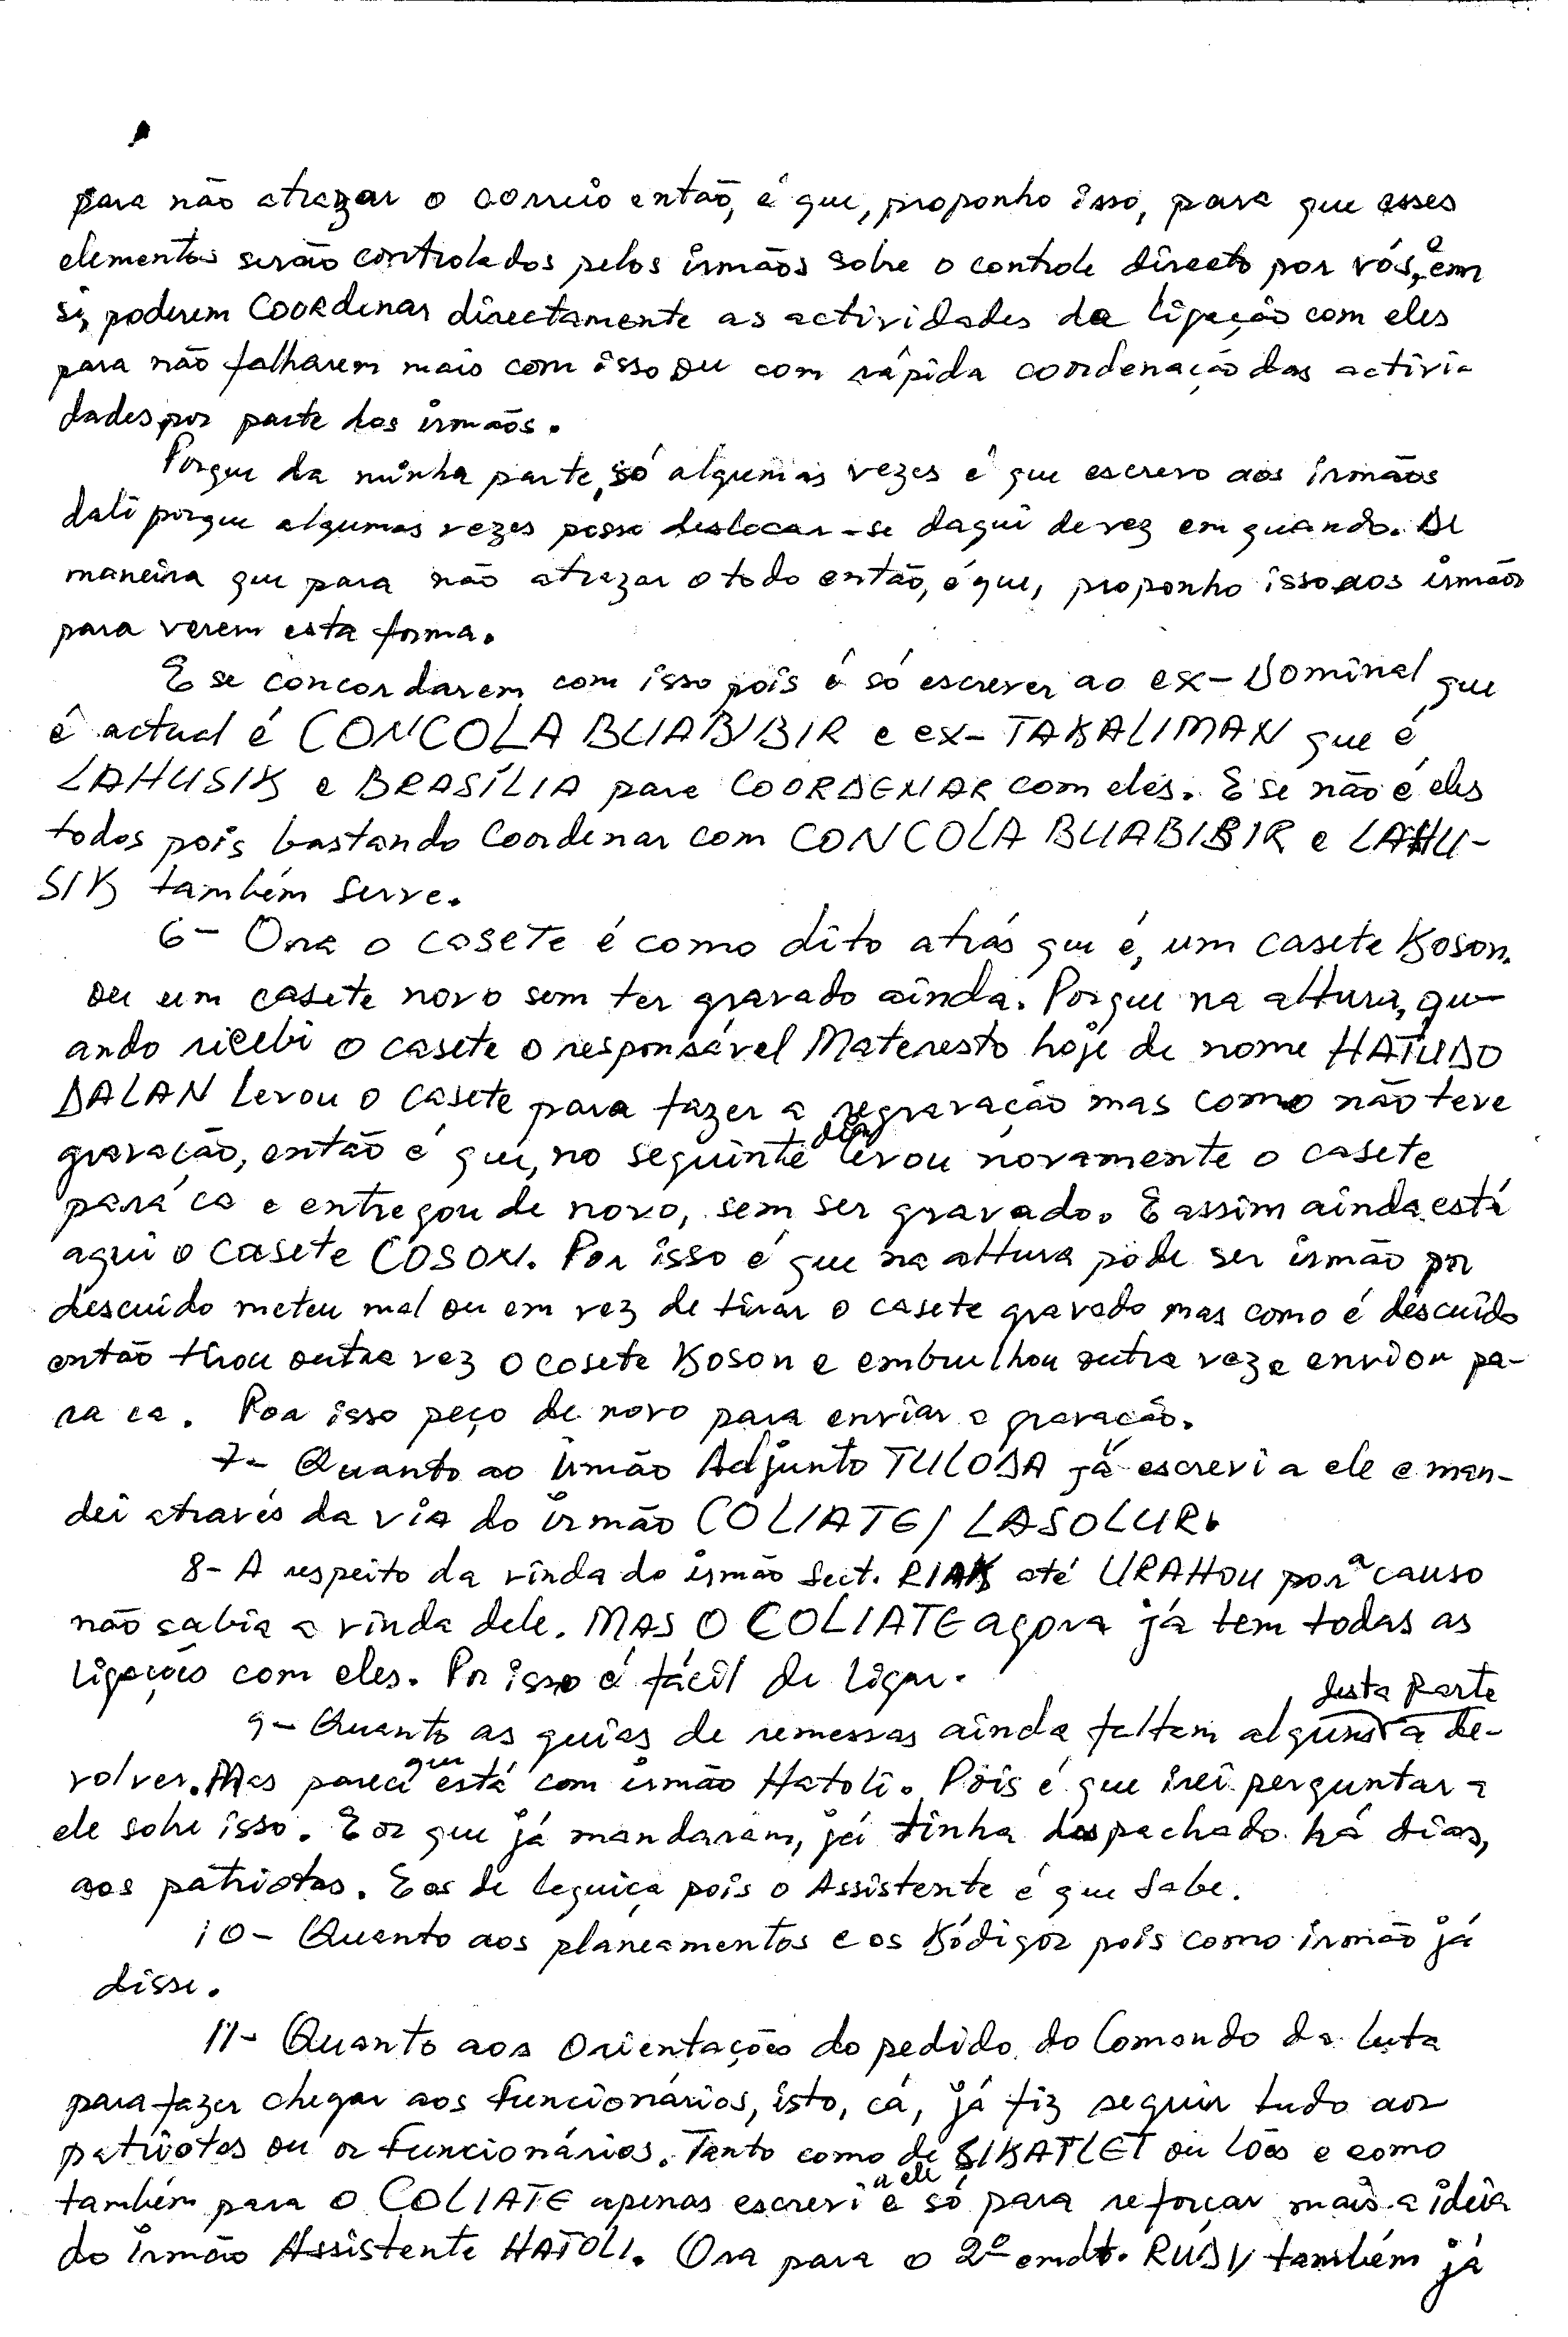 para não atrazar o correio então, é que, proponho isso, para que esses
elementos serão controlados pelos irmãos sobre o controle directo por vós, e em
si, poderem COORdenar directamente as actividades da ligação com eles
para não falharem mais com isso ou com rápida coordenação das activi-
dades por parte dos irmãos.
Porque da minha parte, só algumas vezes é que escrevo aos irmãos
dali porque algumas vezes posso deslocar-se daqui de vez em quando. De
maneira que para não atrazar o todo então, é que, proponho isso aos irmãos
para verem esta forma.
E se concordarem com isso pois é só escrever ao ex-Dominal que
é actual é CONCOLA BUABIBIR e ex-TAKALIMAN que é
LAHUSIK e BRASÍLIA para COORDENAR com eles. E se não é eles
todos pois bastando Coordenar com CONCOLA BUABIBIR e LAHU-
SIK também serve.
6- Ora o casete é como dito atrás que é, um casete Koson.
ou um casete novo sem ter gravado ainda. Porque na altura, qu-
ando recebi o casete o responsável Materesto hoje de nome HATUDO
DALAN levou o casete para fazer a regravação mas como não teve
gravação, então é que, no seguinte dia levou novamente o casete
para ca e entregou de novo, sem ser gravado. E assim ainda está
aqui o casete COSON. Por isso é que na altura pode ser irmão por
descuido meteu mal ou em vez de tirar o casete gravado mas como é descuido
então tirou outra vez o casete Koson e embrulhou outra vez e enviou pa-
ra ca. Por isso peço de novo para enviar a gravação.
7- Quanto ao irmão Adjunto TULODA já escrevi a ele e man-
dei através da via do irmão COLIATE/LASOLUR.
8- A respeito da vinda do irmão Sect. RIAK até URAHOU por a causo
não sabia a vinda dele. MAS O COLIATE agora já tem todas as
ligações com eles. Por isso é fácil de ligar.
9- Quanto as guias de remessas ainda faltam alguns desta parte a de-
volver. Mas pareci que está com irmão Hatoli. Pois é que irei perguntar a
ele sobre isso. E os que já mandaram, já tinha despachado há dias,
aos patriotas. E os de leguiça pois o Assistente é que sabe.
10- Quanto aos planeamentos e os Kódigos pois como irmão já
disse.
11- Quanto aos orientações do pedido do Comando da luta
para fazer chegar aos funcionários, isto, cá, já fiz seguir tudo aos
patriotas ou os funcionários. Tanto como de BIKATLET ou lões e como
também para o COLIATE apenas escrevi a ele e só para reforçar mais a ideia
do irmão Assistente HATOLI. Ora para o 2º cmdt. RUDY também já